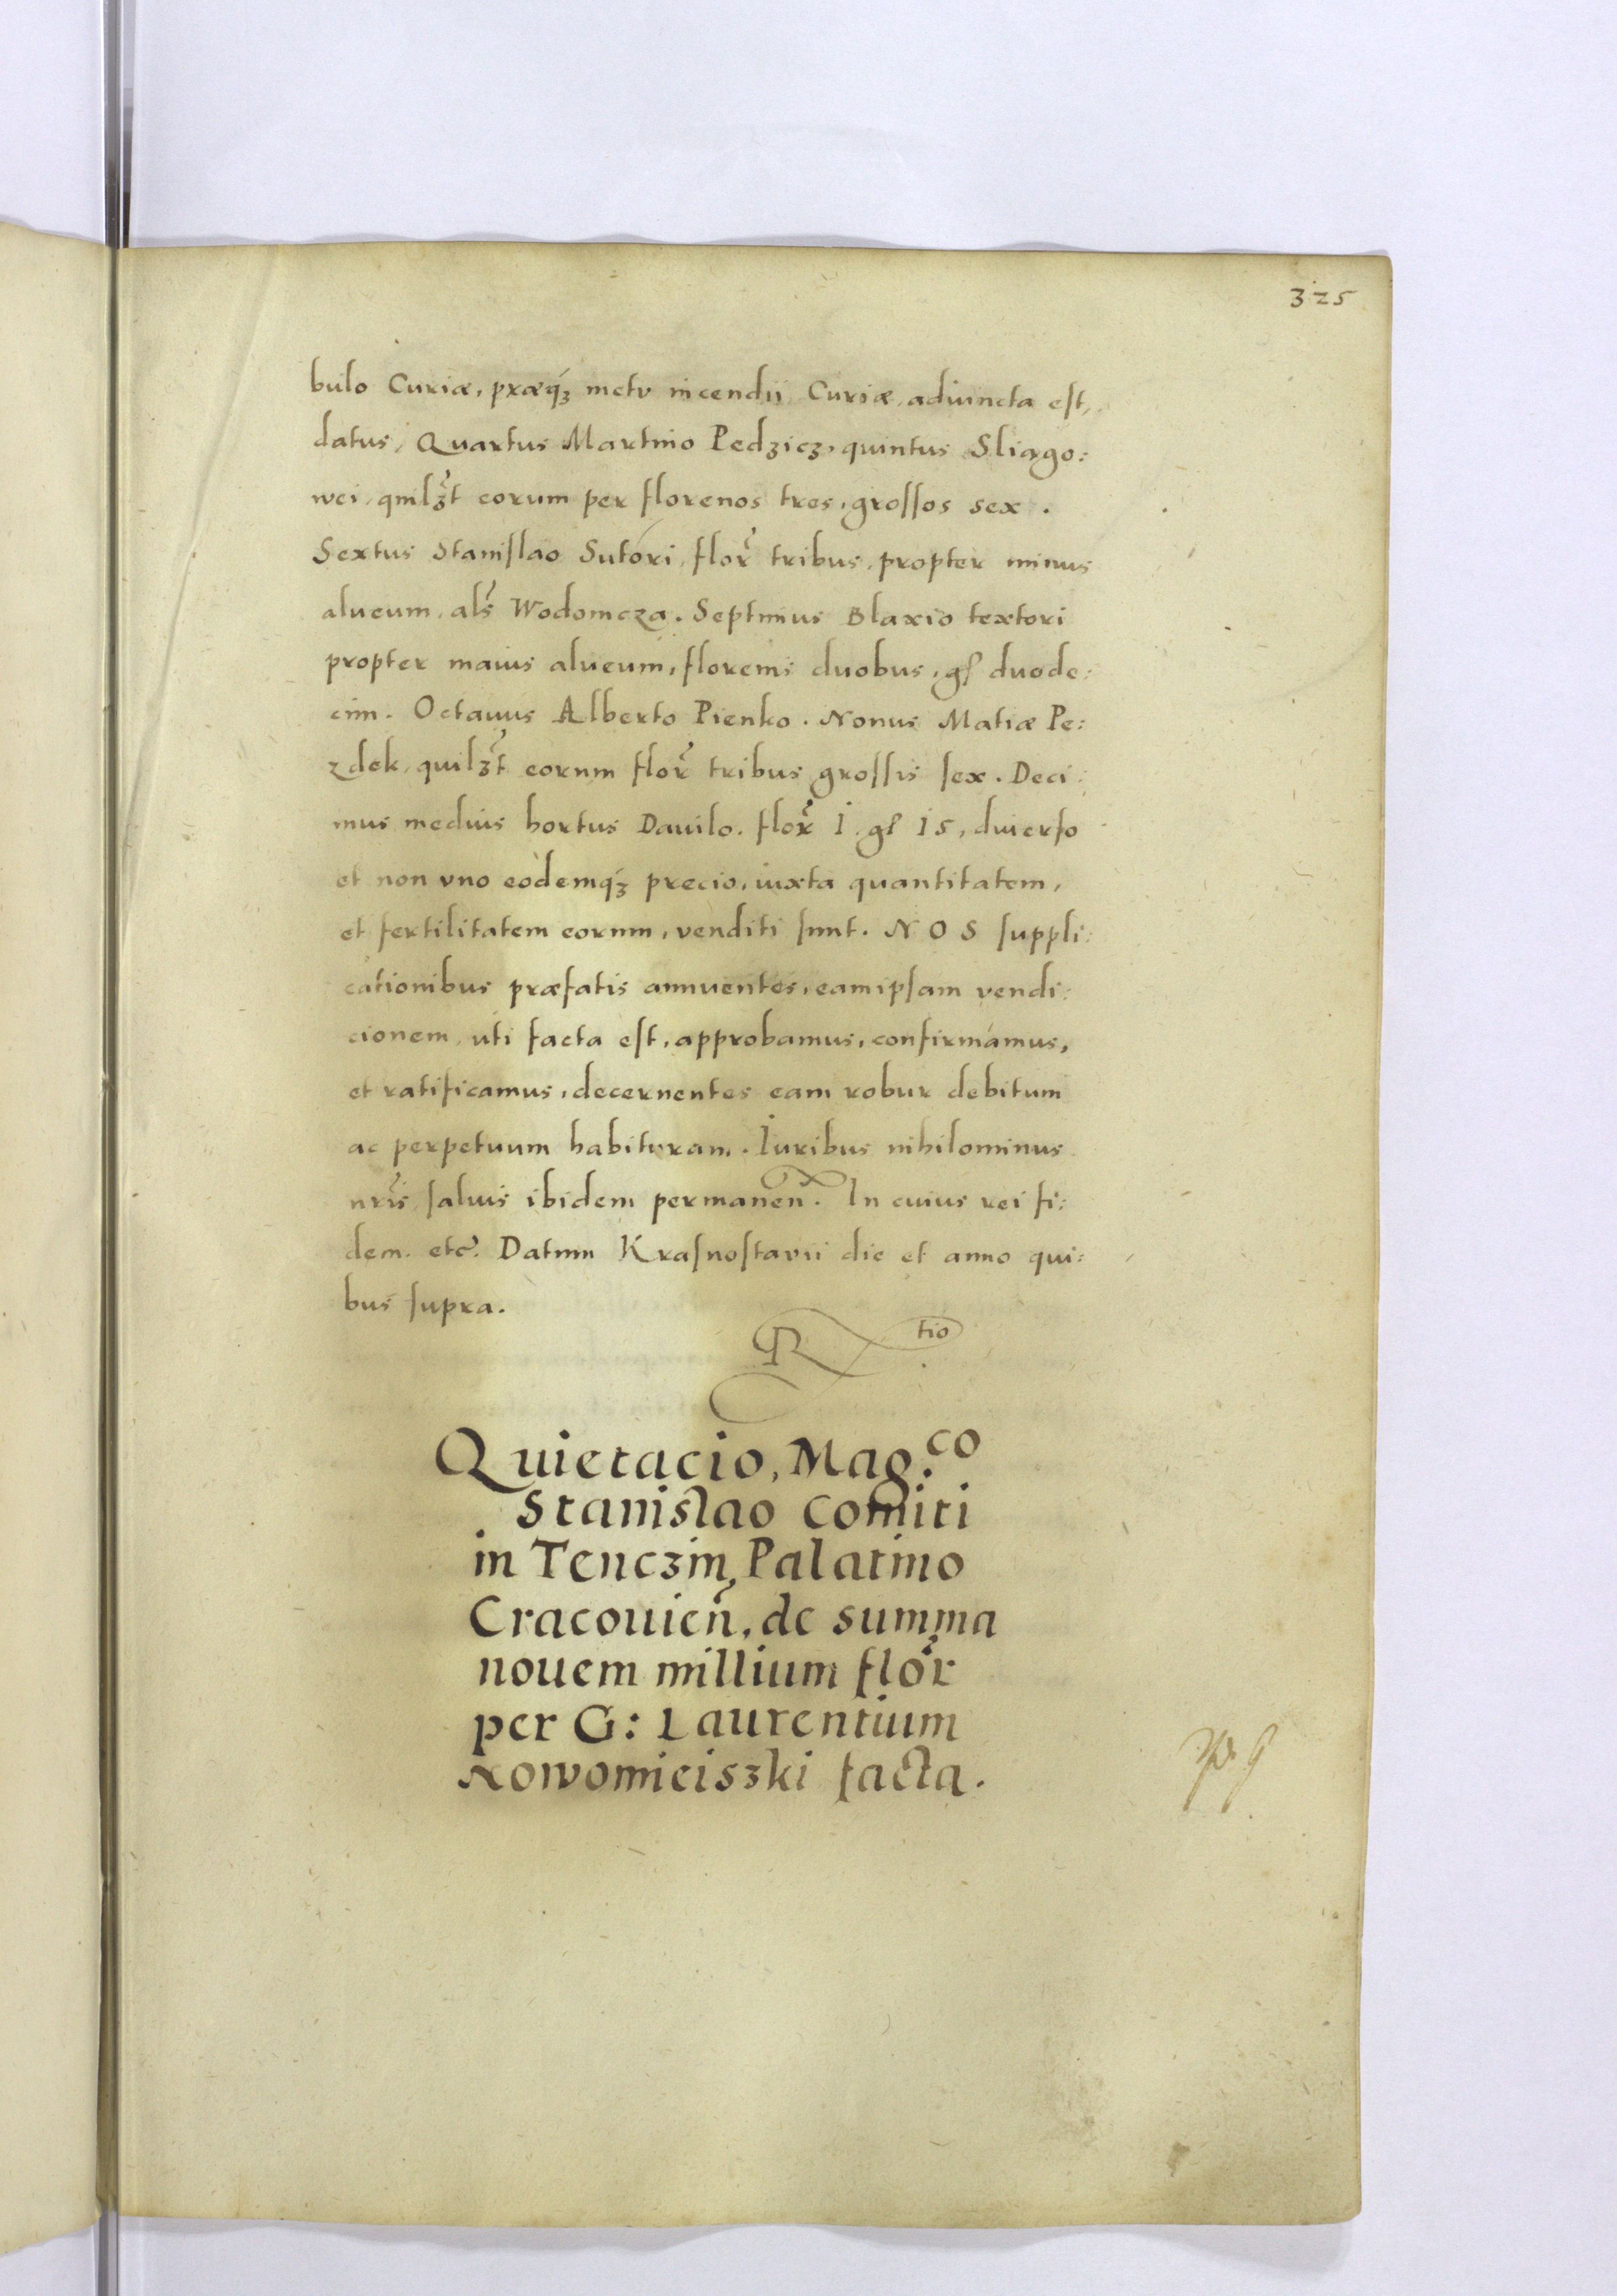 325
bulo Curiæ, præq́ʒ metu incendii Curiæ, adiuncta est,
datus, Quartus Martino Pedzicz, quintus Sliago:
wei, quilʒt eorum per florenos tres, grossos sex.
Sextus Stanislao Sutori, flor̃ tribus, propter minus
alueum, als̃ Wodomcza. Septimus Blaxio textori
propter maius alueum, florenis duobus, gſ duode:
cim. Octauus Alberto Pienko. Nonus Matiæ Pe:
zdek, quilʒt eorum flor̃ tribus grossis sex. Deci:
mus medius hortus Dauilo. flor̃ 1. gſ 15, diuerso
et non vno eòdemq́ʒ precio, iuxta quantitatem,
et fertilitatem eorum, venditi sunt. NOS suppli:
cationibus præfatis annuentes, eamipsam vendi:
cionem, uti facta est, approbamus, confirmamus,
et ratificamus, decernentes eam robur debitum
ac perpetuum habituram. Iuribus nihilominus
nrĩs saluis ibidem permanen̄. In cuius rei fi:
dem. etc̃. Datum Krasnostavii die et anno qui:
bus supra.
R tio
Quietacio, Mag.co
Stanislao Comiti
in Tenczin, Palatino
Cracouien̄, de summa
nouem millium flor̃
per G: Laurentium
Nowomieiszki facta.